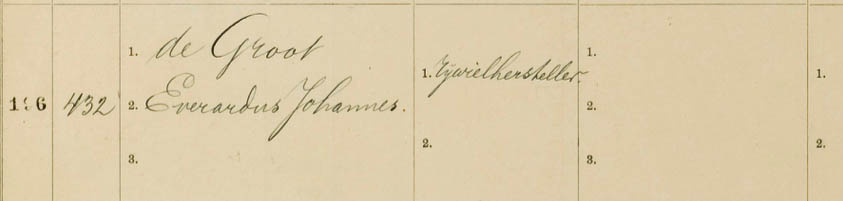 1. de Groot
196 432 2. Everardus Johannes.
3.
1. Rijwielhersteller.
2.
1.
2.
3.
1.
2.